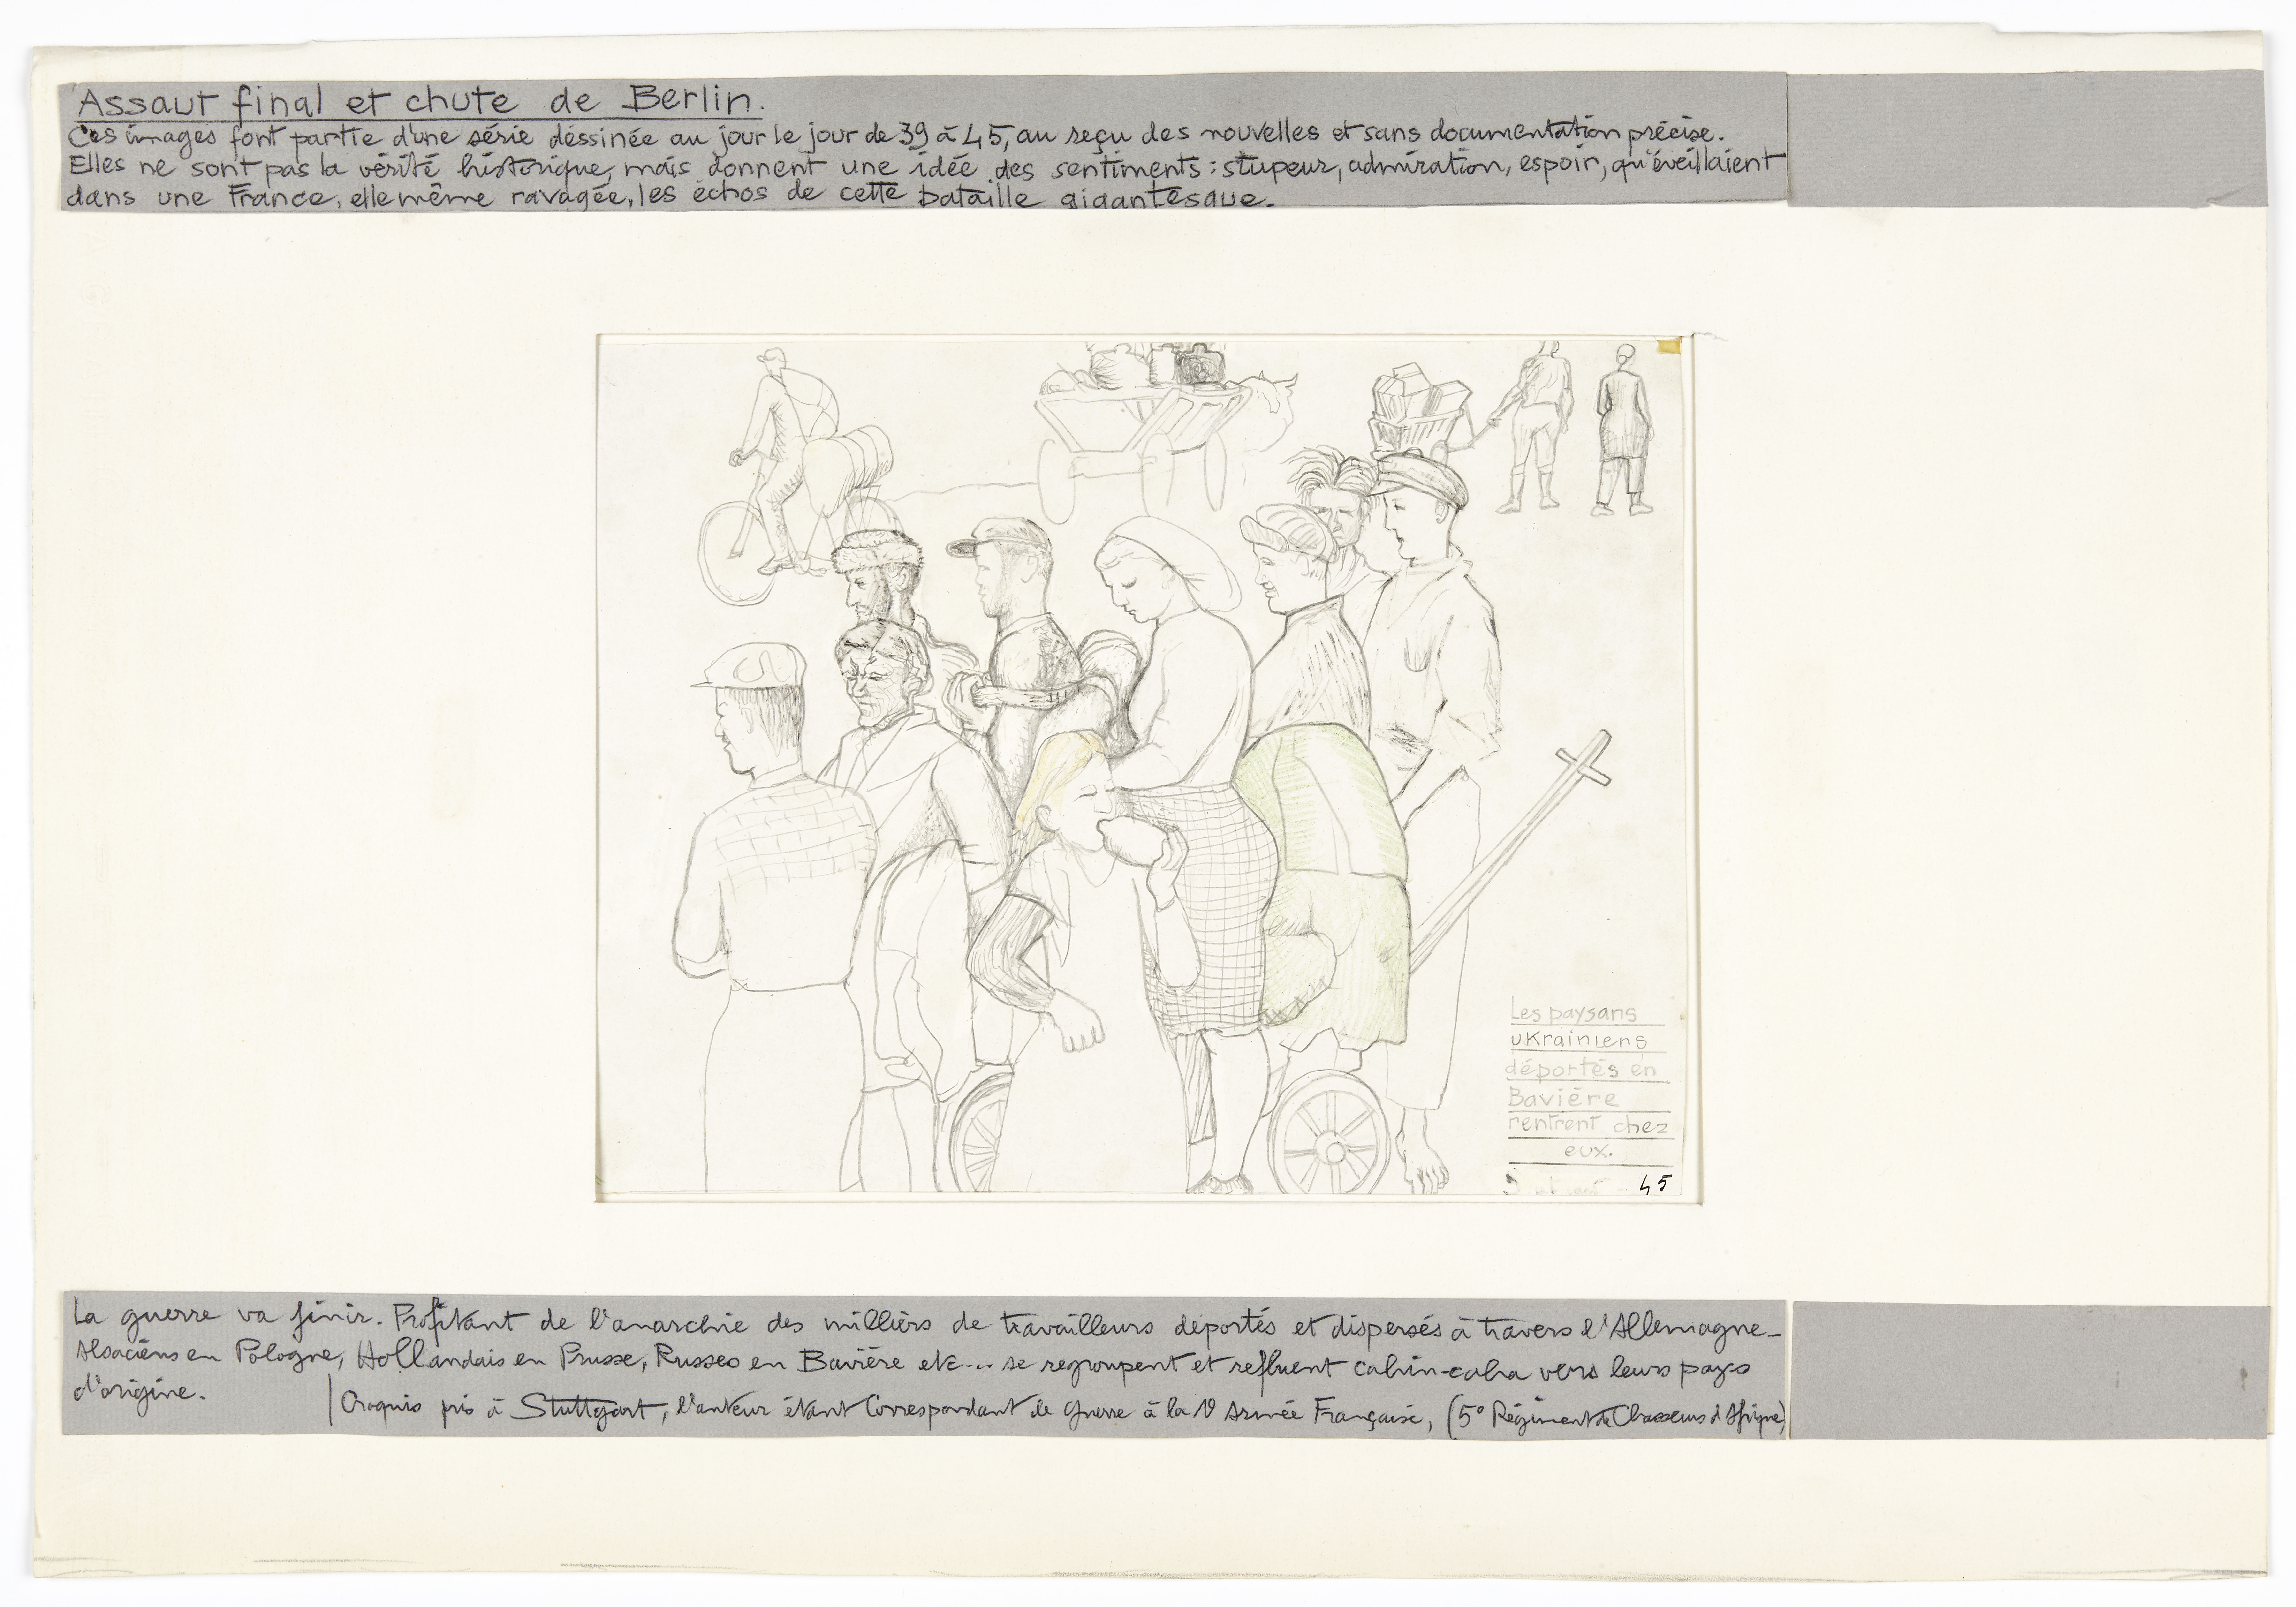 Assaut final et chute de Berlin.
Ces images font partie d'une série déssinée au jour le jour de 39 à 45, au reçu des nouvelles et sans documentation précise.
Elles ne sont pas la vérité historique, mais donnent une idée des sentiments : stupeur, admiration, espoir, qu'éveillaient
dans une France, elle même ravagée, les échos de cette bataille gigantesque.
Les paysans
ukrainiens
déportés en
Bavière
rentrent chez
eux.
45
La guerre va finir. Profitant de l'anarchie des milliers de travailleurs déportés et dispersés à travers l'Allemagne -
Alsaciens en Pologne, Hollandais en Prusse, Russes en Bavière etc... se regroupent et refluent cahin-caha vers leurs pays
d'origine.
Croquis pris à Stuttgart, l'auteur étant Correspondant de Guerre à la Armée Française, (5° Régiment de Chasseurs d'Afrique)